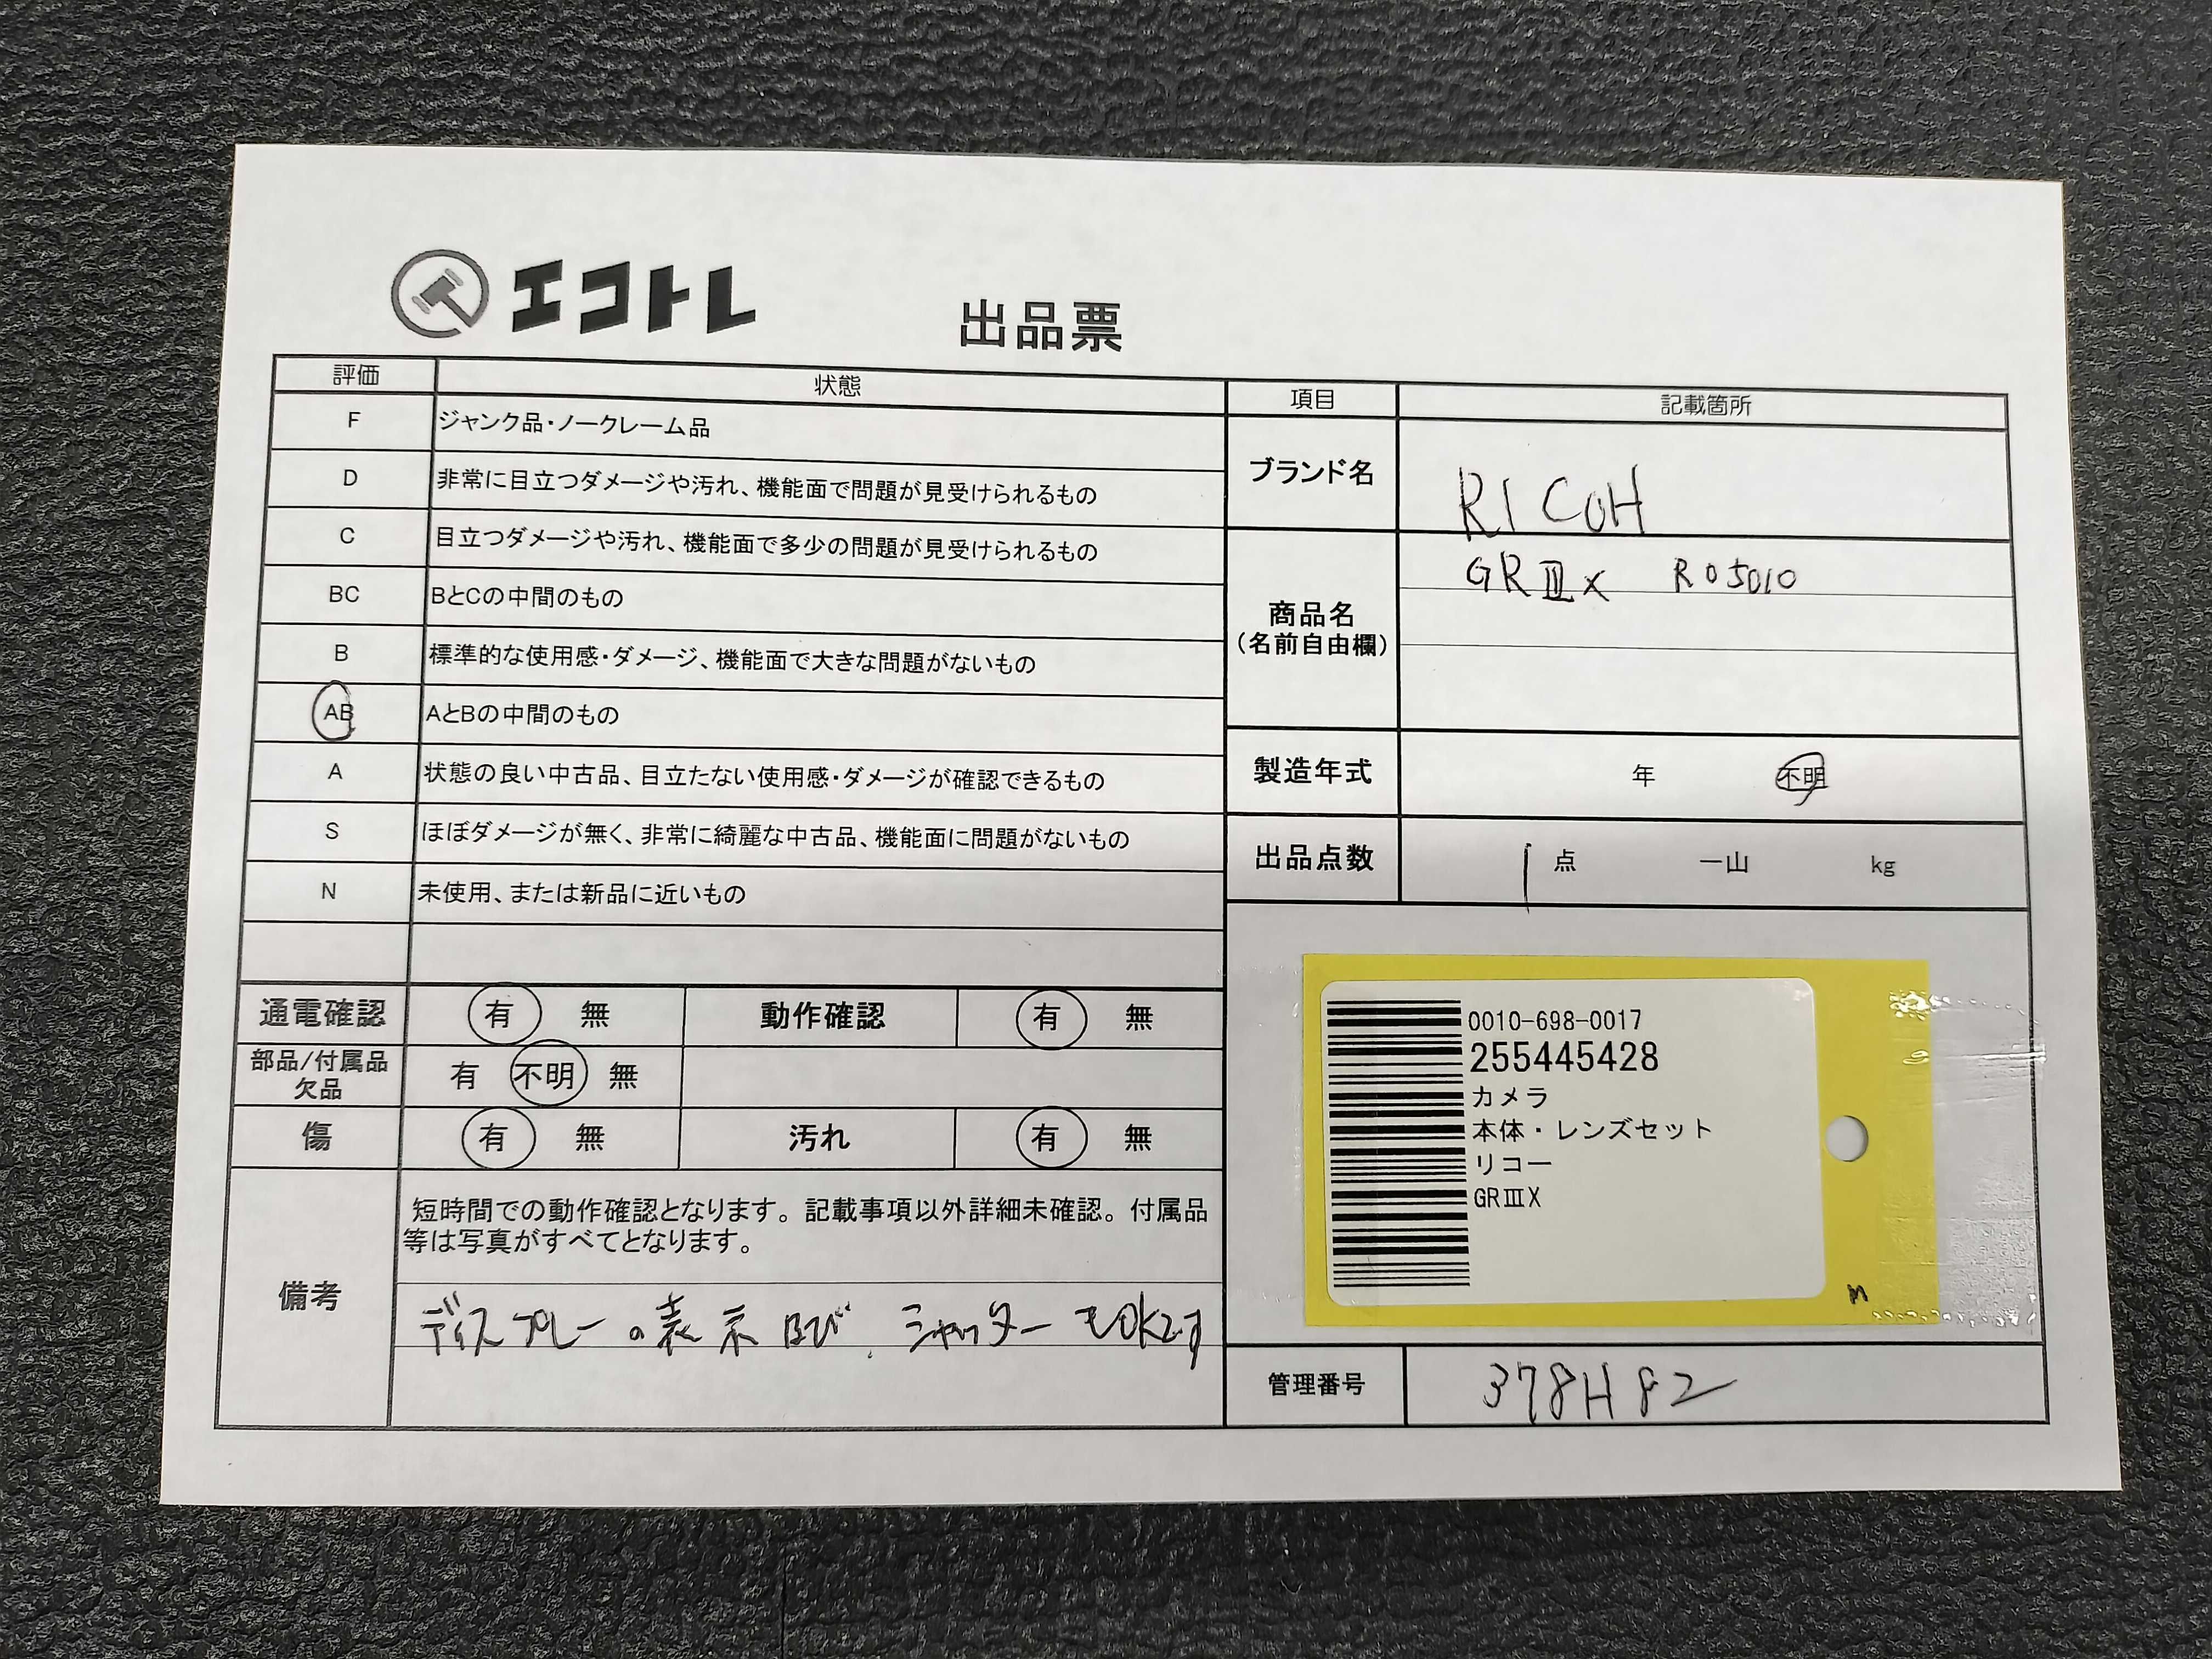 エコトレ
出品票
評価 状態
F ジャンク品・ノークレーム品
D 非常に目立つダメージや汚れ、機能面で問題が見受けられるもの
C 目立つダメージや汚れ、機能面で多少の問題が見受けられるもの
BC BとCの中間のもの
B 標準的な使用感・ダメージ、機能面で大きな問題がないもの
AB AとBの中間のもの
A 状態の良い中古品、目立たない使用感・ダメージが確認できるもの
S ほぼダメージが無く、非常に綺麗な中古品、機能面に問題がないもの
N 未使用、または新品に近いもの
通電確認 有 無 動作確認 有 無
部品/付属品
欠品
有 不明 無
傷 有 無 汚れ 有 無
備考
短時間での動作確認となります。記載事項以外詳細未確認。付属品
等は写真がすべてとなります。
ディスプレーの表示及び、シャッターもOKです
項目 記載箇所
ブランド名 RICOH
商品名
(名前自由欄)
GRⅢx R05010
製造年式 年 不明
出品点数 1 点 一山 kg
0010-698-0017
255445428
カメラ
本体・レンズセット
リコー
GRⅢX
M
管理番号 378H82